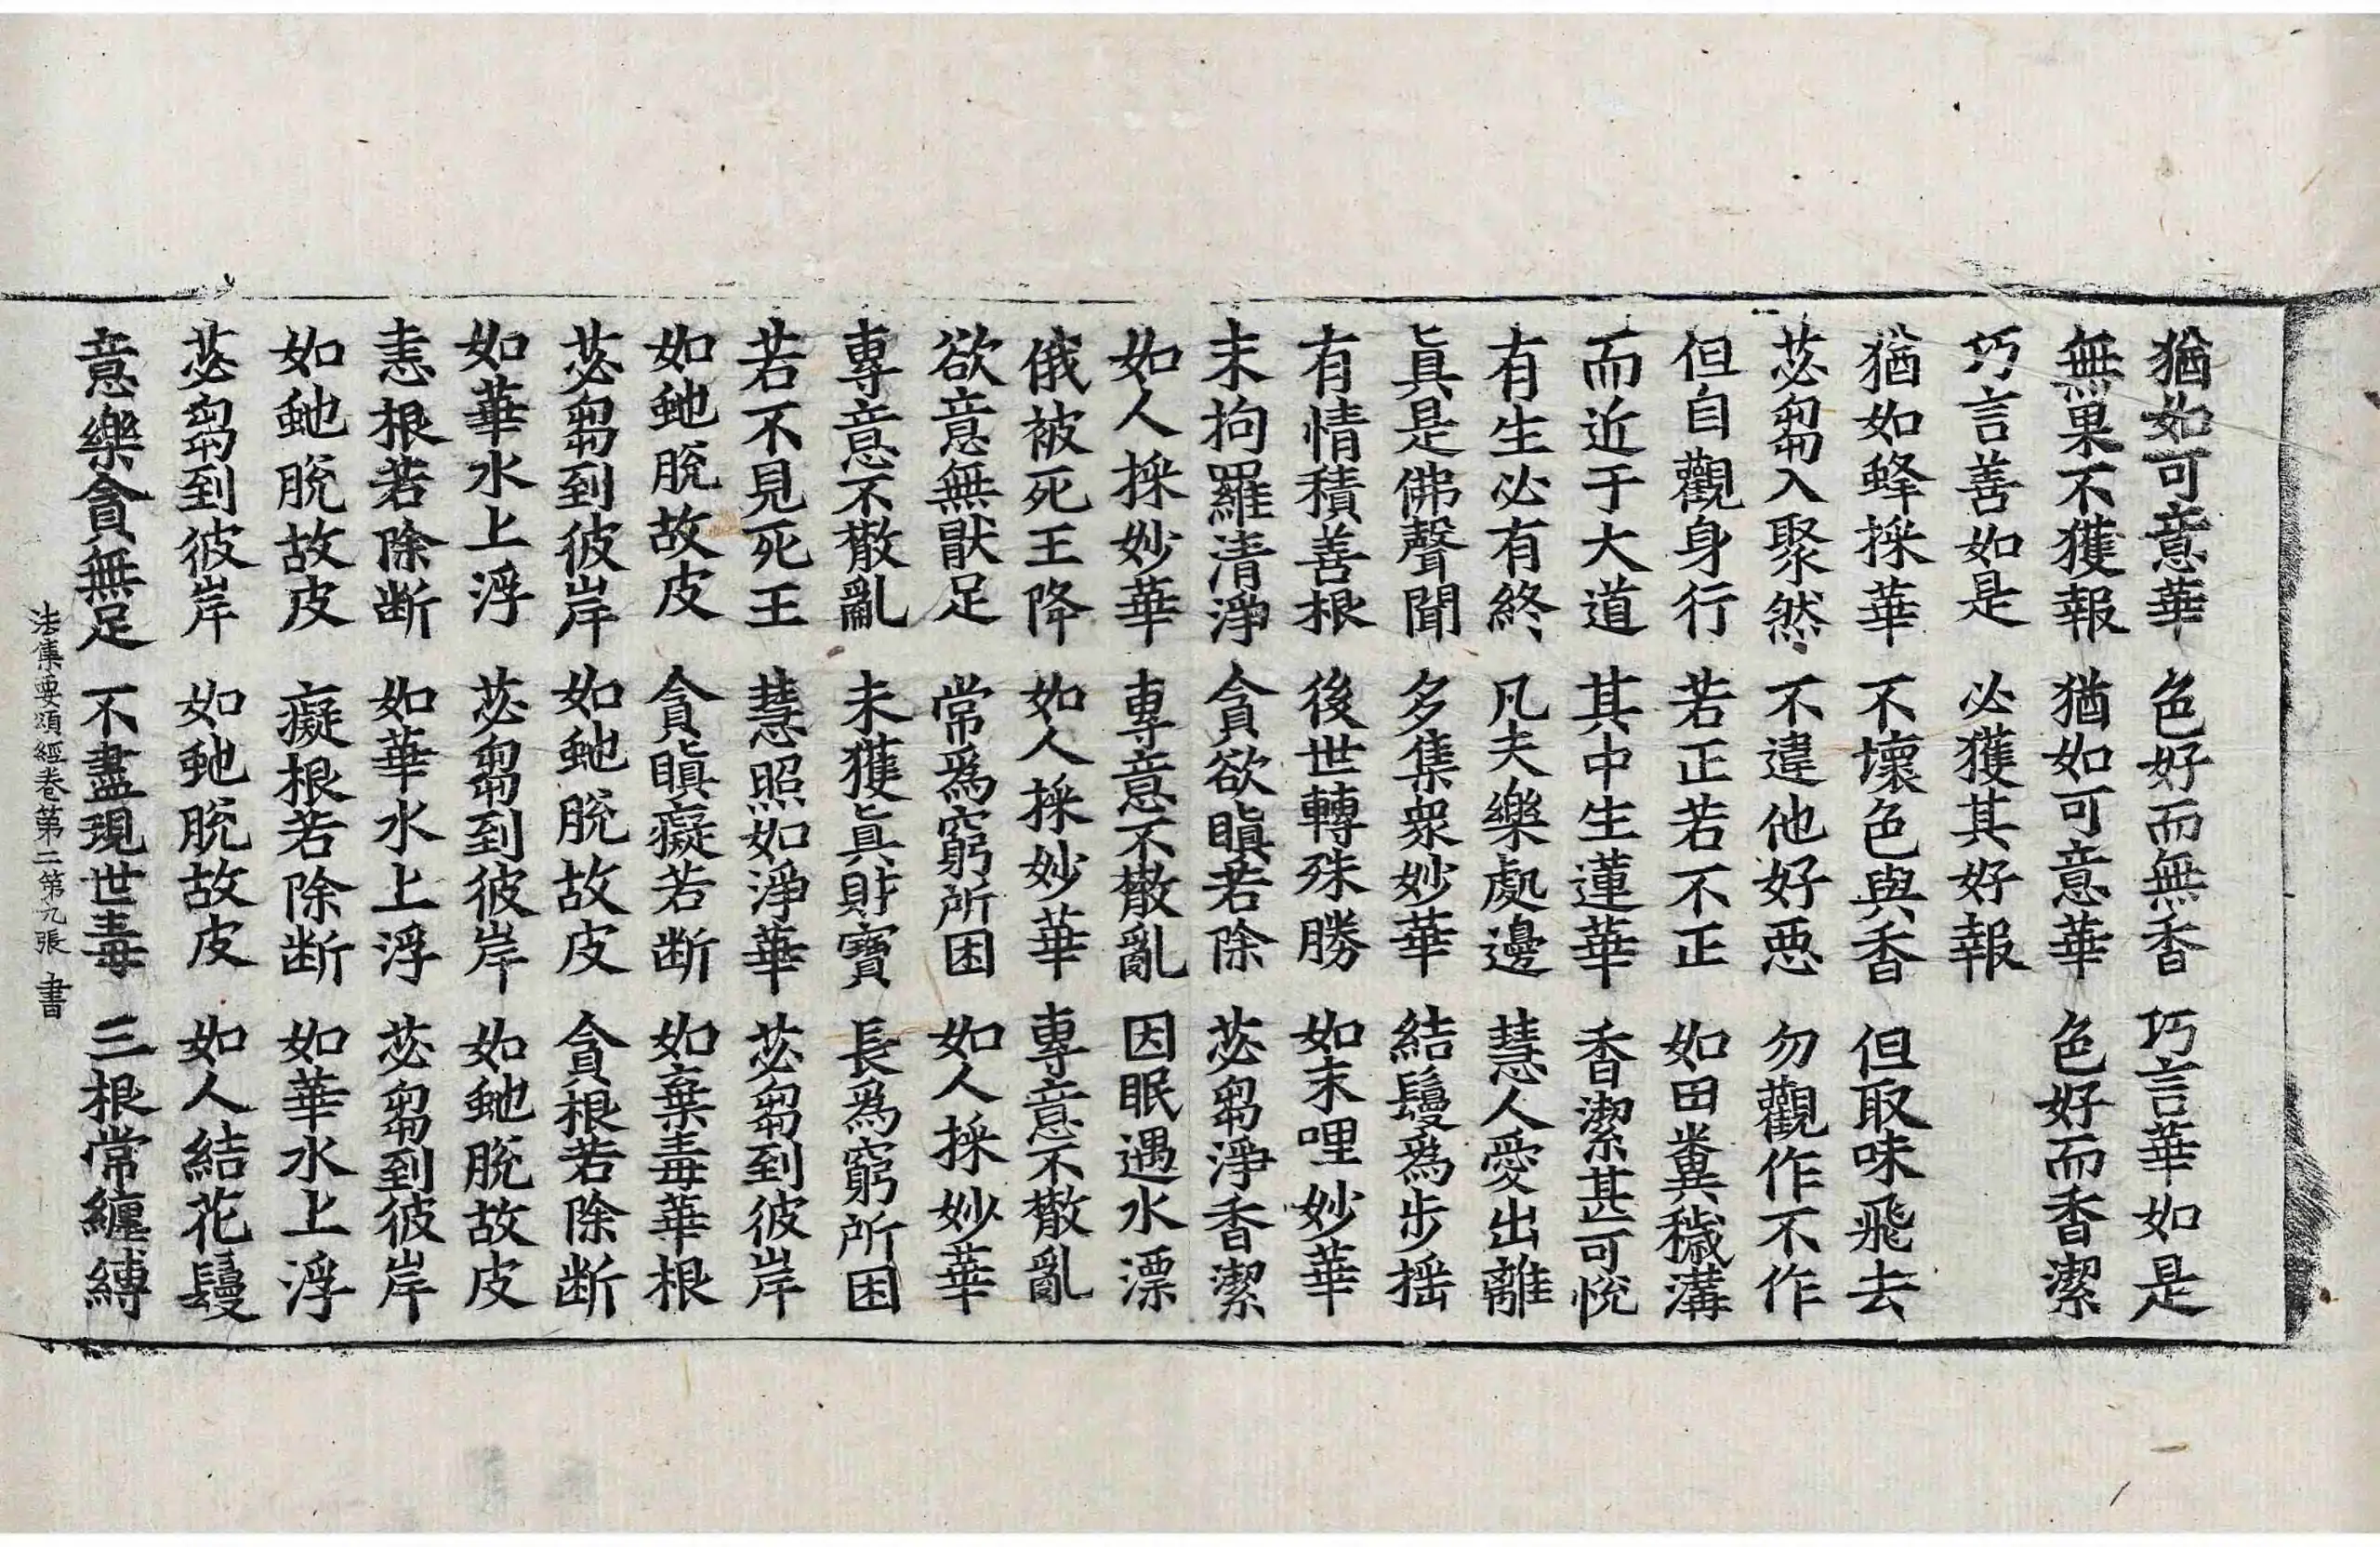 猶如可意華 色好而無香 巧言華如是
無果不獲報 猶如可意華 色好而香潔
巧言善如是 必獲其好報
猶如蜂採華 不壞色與香 但取味飛去
苾芻入聚然 不違他好惡 勿觀作不作
但自觀身行 若正若不正 如田糞穢溝
而近于大道 其中生蓮華 香潔甚可悅
有生必有終 凡夫樂處邊 慧人愛出離
眞是佛聲聞 多集衆妙華 結鬘爲步搖
有情積善根 後世轉殊勝 如末哩妙華
末拘羅清淨 貪欲瞋若除 苾芻淨香潔
如人採妙華 專意不散亂 因眠遇水漂
俄被死王降 如人採妙華 專意不散亂
欲意無猒足 常爲窮所困 如人採妙華
專意不散亂 未獲眞財寶 長爲窮所困
若不見死王 慧照如淨華 苾芻到彼岸
如虵脫故皮 貪瞋癡若断 如棄毒華根
苾芻到彼岸 如虵脫故皮 貪根若除断
如華水上浮 苾芻到彼岸 如虵脫故皮
恚根若除断 如華水上浮 苾芻到彼岸
如虵脫故皮 癡根若除断 如華水上浮
苾芻到彼岸 如虵脫故皮 如人結花鬘
意樂貪無足 不盡現世毒 三根常纏縛
法集要頌經卷第二第九張 書